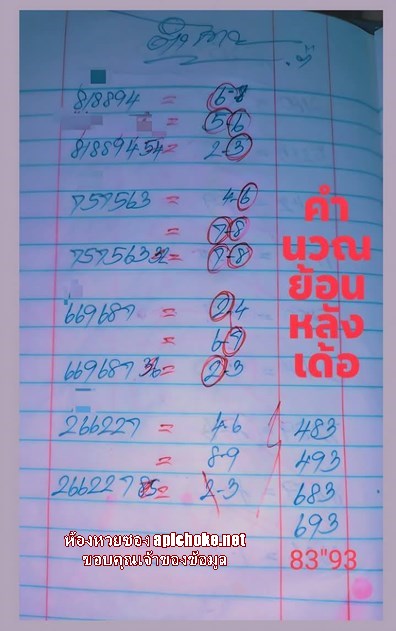 818894 = 6-8
= 5-6
81889454 = 2-3
757563 = 4-6
= 7-8
757563 = 7-8
669687 = 2-4
= 6-7
66968736 = 2-3
266227 = 4-6
= 8-9
26622785 = 2-3
483
493
683
693
83"93
คำ
นวณ
ย้อน
หลัง
เด้อ
ห้องหวยซอง apichoke.net
ขอบคุณเจ้าของข้อมูล